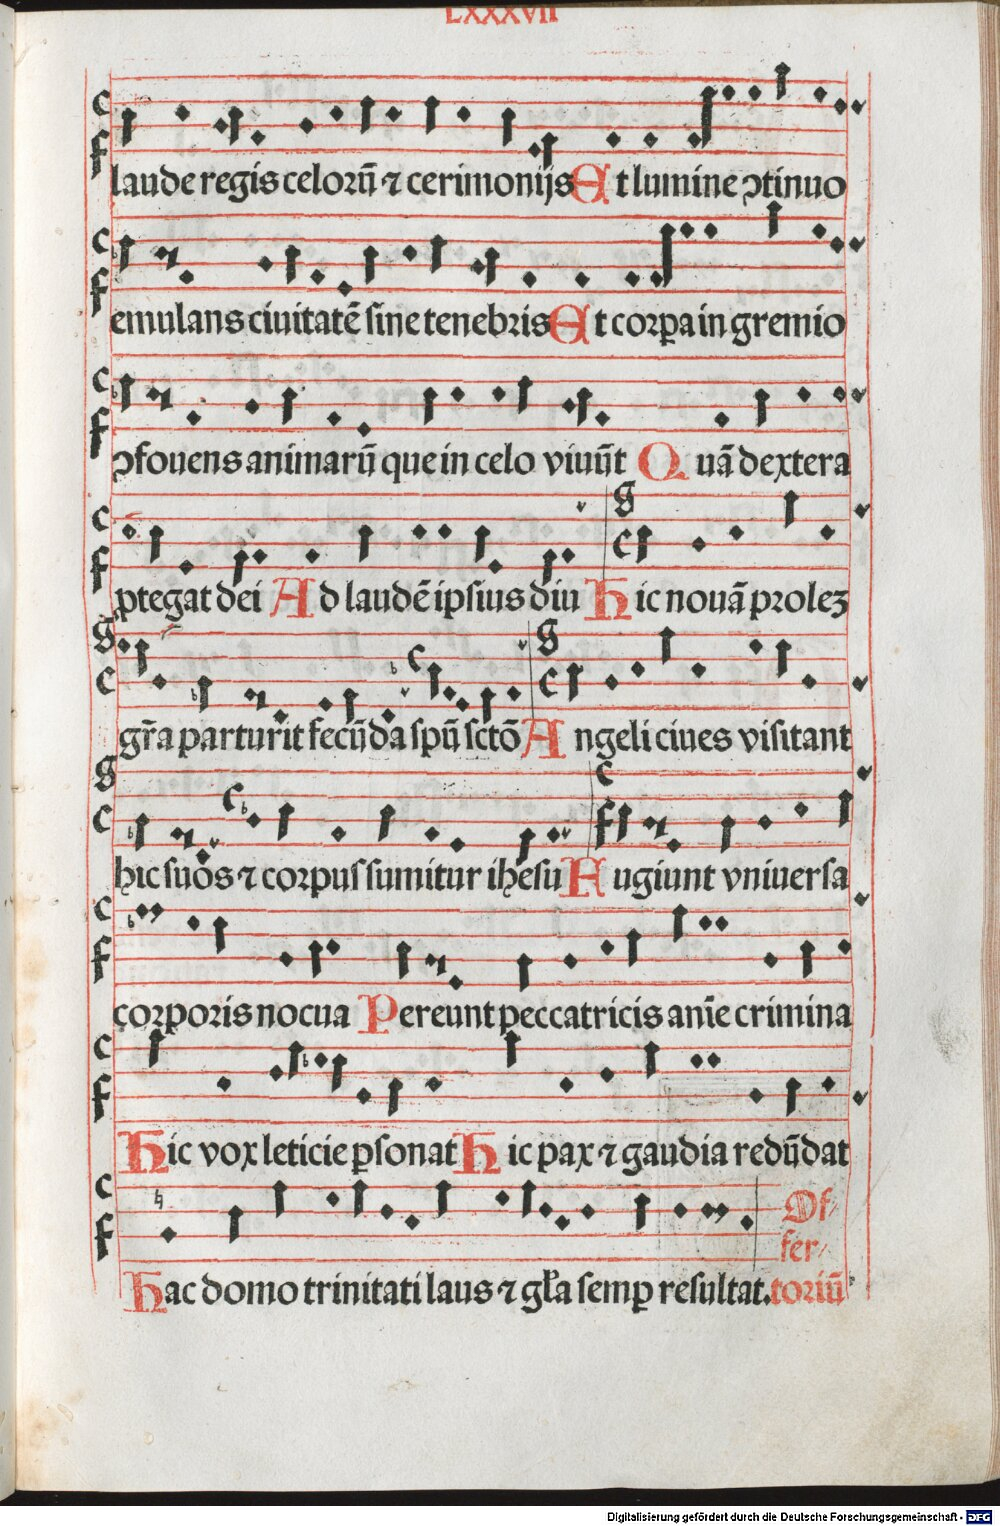 LXXXVII
laude regis celorū ⁊ cerimonijs Et lumine ↄtinuo
emulans ciuitatē sine tenebris Et corꝑa in gremio
ↄfouens animarū que in celo viuūt Quā dextera
ꝓtegat dei Ad laudē ipsius diu Hic nouā prolez
gr̄a parturit fecūda spū sctō Angeli ciues visitant
hic suos ⁊ corpus sumitur ihesu Fugiunt vniuersa
corporis nocua Pereunt peccatricis anīe crimina
Hic vox leticie ꝑsonat Hic pax ⁊ gaudia redūdat
Of
fer
Hac domo trinitati laus ⁊ gl̄a semꝑ resultat. toriū
Digitalisierung gefördert durch die Deutsche Forschungsgemeinschaft - DFG